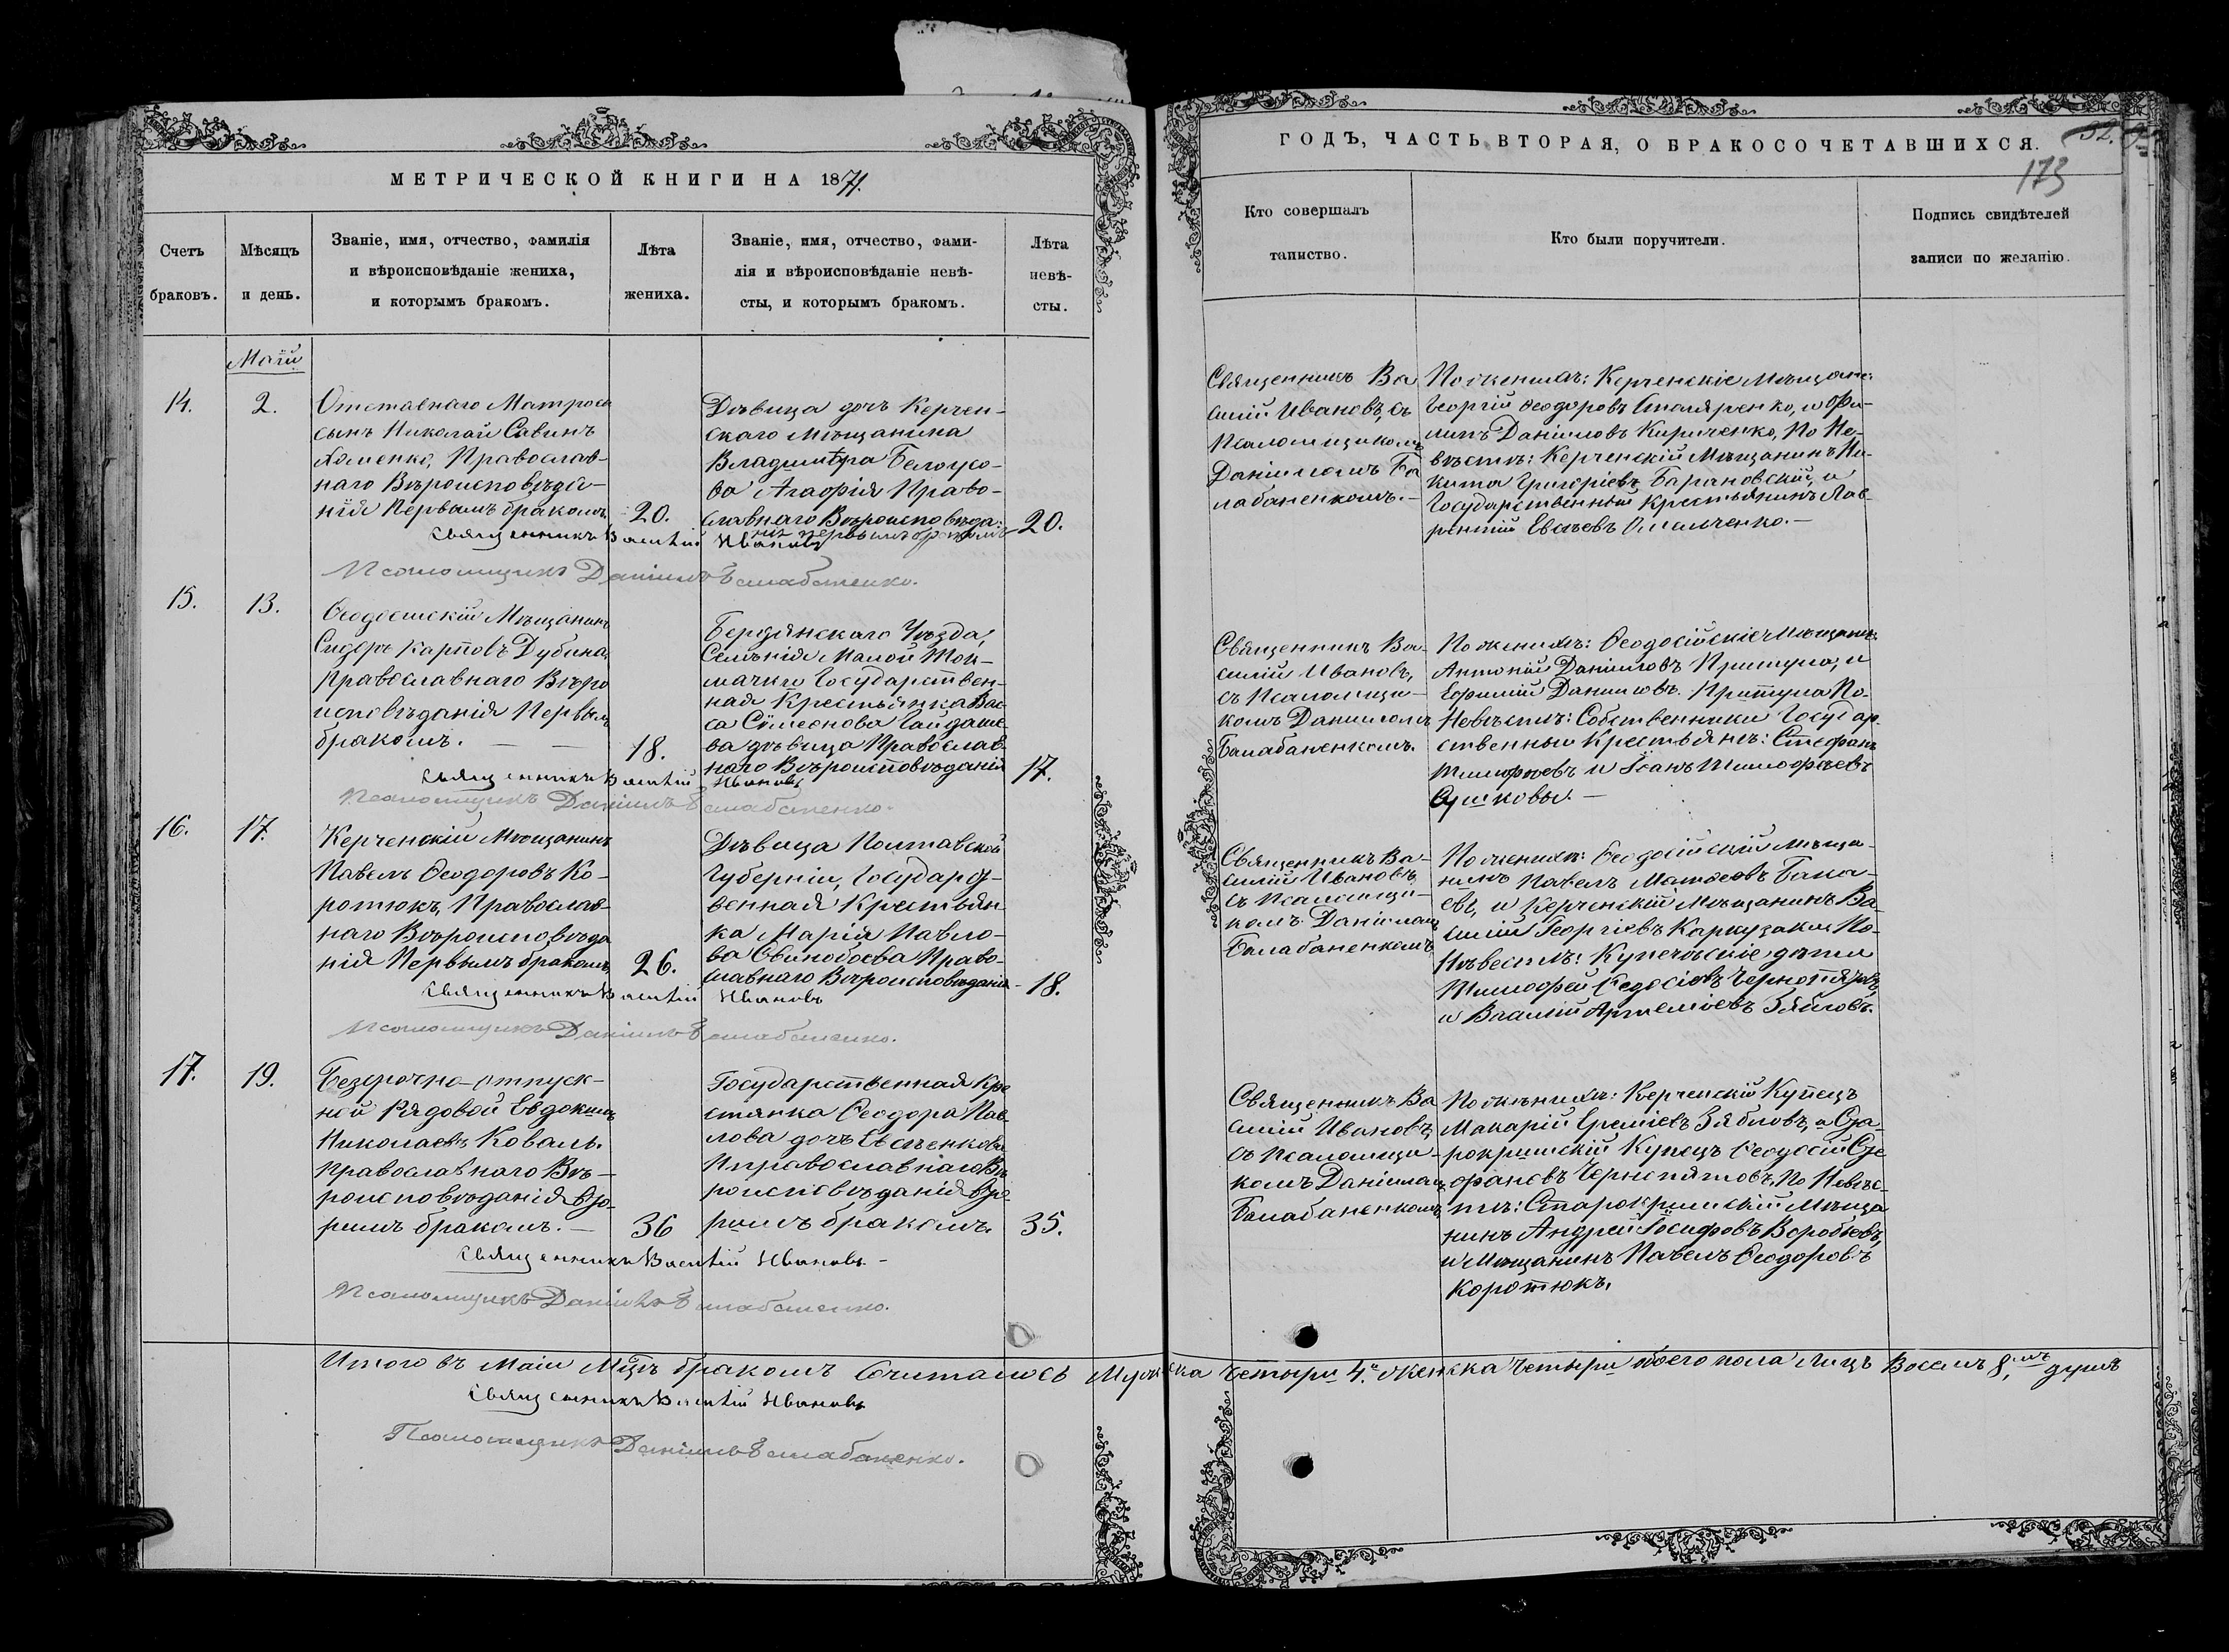 МЕТРИЧЕСКОЙ КНИГИ НА 1871.
Счетъ браковъ.
Мѣсяцъ и день.
Званіе, имя, отчество, фамилія
и вѣроисповѣданіе жениха,
и которымъ бракомъ.
Лѣта
жениха.
Званіе, имя, отчество, фами-
лія и вѣроисповѣданіе невѣ-
сты, и которымъ бракомъ.
Лѣта
невѣ-
сты.
Маій
14.
2.
Отставнаго Матроса
сынъ Николай Савинъ
Хоменко, Православ-
наго Вѣроисповѣда-
нія Первымъ бракомъ
20.
Дѣвица дочь Керчен-
скаго Мѣщанина
Владиміра Белоусо-
ва Агафія Право-
славнаго Вѣроисповѣда-
нія первымъ бракомъ
20.
Священникъ Василій Ивановъ
Псаломщикъ Даніилъ Балабаненко.
15.
13.
Ѳеодосійскій Мѣщанинъ
Сидоръ Карповъ Дубина
Православнаго Вѣро
исповѣданія Первымъ
бракомъ.
18.
Бердянскаго Уѣзда,
Селенія Малой Ток-
мачки Государствен-
ная Крестьянка Вас-
са Сѵмеонова Гайдаше-
ва дѣвица Православ-
наго Вѣроисповѣданія
17.
Священникъ Василій Ивановъ
Псаломщикъ Даніилъ Балабаненко.
16.
17.
Керченскій Мѣщанинъ
Павелъ Ѳеодоровъ Ко-
ротюкъ, Православ-
наго Вѣроисповѣда
нія Первымъ бракомъ,
26.
Дѣвица Полтавской
Губерніи, Государст-
венная Крестьян-
ка Марія Павло-
ва Свинобоева Право-
славнаго Вѣроисповѣданія
18.
Священникъ Василій Ивановъ
Псаломщикъ Даніилъ Балабаненко.
17.
19.
Безсрочно-отпуск-
ной Рядовой Евдокимъ
Николаевъ Коваль.
Православнаго Вѣ-
роисповѣданія Вто-
рымъ бракомъ.
36
Государственная Кре
стянка Ѳеодора Пав-
лова дочь Евсѣенкова
Православнаго Вѣ
роисповѣданія Вто-
рымъ бракомъ.
35.
Священникъ Василій Ивановъ.
Псаломщикъ Даніилъ Балабаненко.
Итого въ Маіи Мцѣ бракомъ Сочеталось Мужска Четыри 4. Женска Четыри обоего пола Лицъ Восемъ 8. душъ
Священникъ Василій Ивановъ
Псаломщикъ Даніилъ Балабаненко.
ГОДЪ, ЧАСТЬ ВТОРАЯ, О БРАКОСОЧЕТАВШИХСЯ.
173
Кто совершалъ
таинство.
Кто были поручители.
Подпись свидѣтелей
записи по желанію.
Священникъ Ва
силій Ивановъ, съ
Псаломщикомъ
Даніиломъ Ба
лабаненкомъ.
По женихѣ: Керченскіе Мѣщане:
Георгій Ѳеодоровъ Столяренко, и Фи-
липъ Даніиловъ Кириченко, По Не-
вѣстѣ: Керченскій Мѣщанинъ Ни-
кита Григоріевъ Барановскій, и
Государственный Крестьянинъ Лав-
рентій Евсѣевъ Омельченко.
Священникъ Ва-
силій Ивановъ,
съ Псаломщи-
комъ Даніиломъ
Балабаненкомъ.
По женихѣ: Ѳеодосійскіе Мѣщане:
Антоній Даніиловъ Притула, и
Ефимій Даниловъ Притула По
Невѣстѣ: Собственники Государ-
ственныи Крестьянъ: Стефанъ
Тимофѣевъ и Іоанъ Тимофѣевъ
Сушковы.
Священникъ Ва-
силій Ивановъ
съ Псаломщи-
комъ Даніиломъ
Балабаненкомъ
По женихѣ: Ѳеодосійскій Мѣща-
нинъ Павелъ Матѳеевъ Бака-
евъ, и Керченскій Мѣщанинъ Ва-
силій Георгіевъ Каркузаки По-
Нѣвестѣ: Купеческіе дѣти
Тимофей Ѳедосіевъ Чернопятовъ,
и Василій Артеміевъ Зябловъ.
Священникъ Ва
силій Ивановъ,
съ Псаломщи-
комъ Даніиломъ
Балабаненкомъ
По женихѣ: Керченскій Купецъ
Макарій Еремѣевъ Зябловъ, и Ста-
рокрымскій Купецъ Ѳеодосій Сте-
фановъ Чернопятовъ, По Невѣс-
тѣ: Старокрымскій Мѣща
нинъ Андрей Іосифовъ Воробіовъ,
и Мѣщанинъ Павелъ Ѳеодоровъ
Коротюкъ.